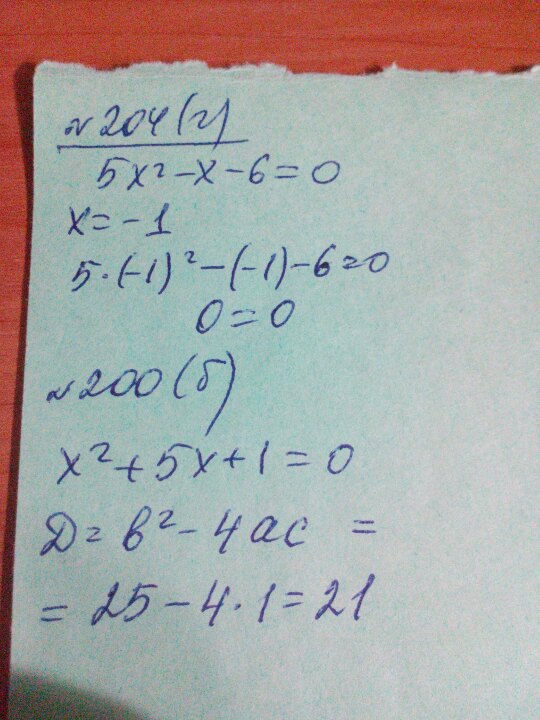 №204(г)
5x²-x-6=0
x=-1
5·(-1)²-(-1)-6=0
0=0
№200(б)
x²+5x+1=0
D=b²-4ac =
=25-4·1=21